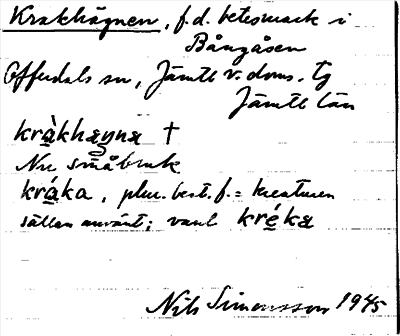 Krakhägnen, f.d. betesmark i
Bångåsen
Offerdals sn, Jämtl. v. doms. tg
Jämtl. län
kràkhægnæ †
Nu småbruk
kráka, plur. best. f. = kreaturen
sällan använt; vanl. kréka
Nils Simonsson 1945